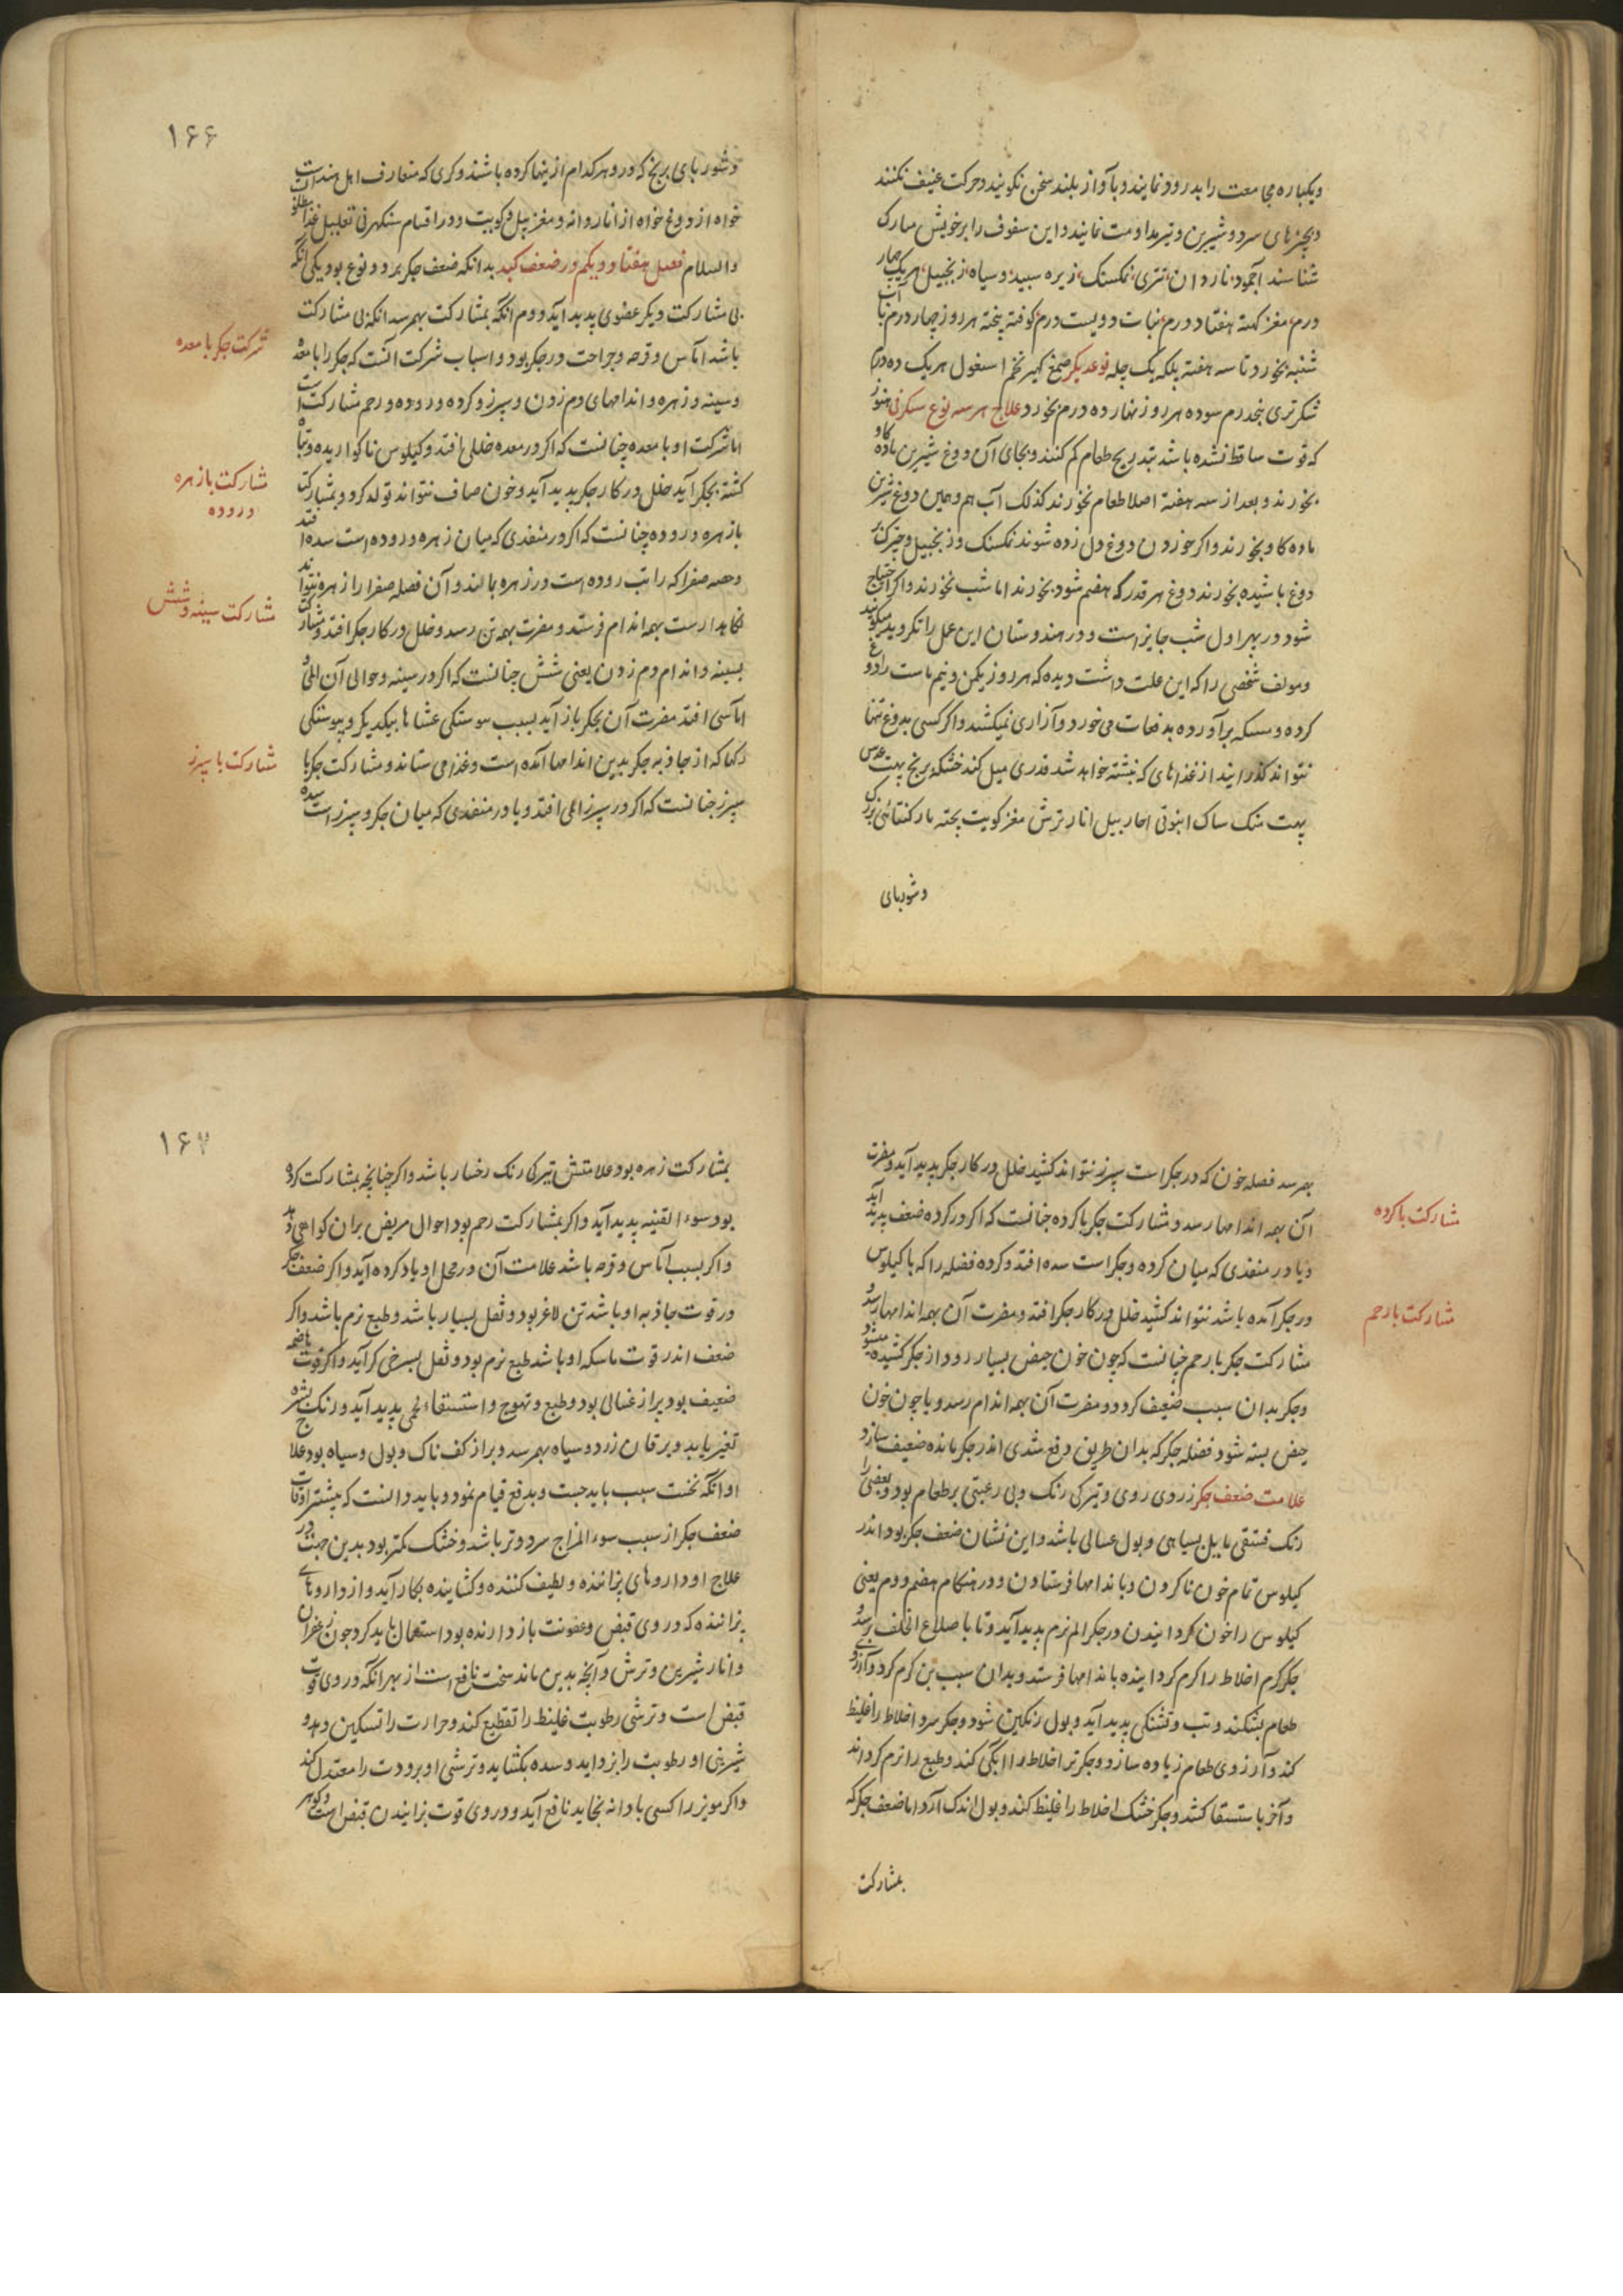 ویکباره مجامعت را بدرود نمایند و بآواز بلند سخن نکویند و حرکت عنیف نکنند
و بچیزهای سرد و شیرین و تیر مداومت نمایند و این سفوف را بر خویش مبارک
شناسند آجمود ناردان تتری نمکسنک زیره سپید و سیاه زنجبیل هر یک چهار
درم مغز کهته هفتاد درم نبات دویست درم کوفته پخته هر روز چهار درم با آب
شنبه بخورد تا سه هفته بلکه یک چله نوعدیکر صمغ کهیر تخم اسغول هر یک ده درم
شکر تری پنجدرم سوده هر روز نهار ده درم بخورد علاج هر سه نوع سنکرنی هنوز
که قوت ساقط نشده باشد بتدریج طعام کم کنند و بجای آن دوغ شیرین ماده کاو
بخورند و بعد از سه هفته اصلا طعام نخورند کذلک آب هم و همین دوغ شیرین
ماده کاو بخورند و اکر خوردن دوغ دل زده شوند نمکسنک و زنجبیل و چترک بر
دوغ باشیده بخورند دوغ هر قدر که هضم شود بخورند اما شب نخورند و اکر احتیاج
شود در پهر اول شب جایز است و در هندوستان این عمل را تکر وید میکویند
و مولف شخصی را که این علت داشت دیده که هر روز یکمن و نیم ماست را دوغ
کرده و مسکه برآورده بدفعات می خورد و آزاری نمیکشد و اکر کسی بدوغ تنها
نتواند کذرانید از غذاهای که نبشته خواهد شد قدری میل کند خشکه برنج پهت عدس
پهت منک ساک انبوتی اچار بیل انار ترش مغز کویت پخته بار کنتائی بزرک
و شوربای
۱۶۶
و شوربای برنج که در و هر کدام از ینها کرده باشند و کری که متعارف اهل هند است
خواه از دوغ خواه از اناردانه و مغز بیل و کویت و در اقسام سنکهرنی تقلیل غذا مطلوبست
والسلام فصل هفتاد و یکم در ضعف کبد بدانکه ضعف جکر بر دو نوع بود یکی آنکه
بی مشارکت دیکر عضوی پدید آید دوم آنکه بمشارکت بهم رسد آنکه بی مشارکت
باشد آماس و قرحه و جراحت در جکر بود و اسباب شرکت آنست که جکر را با معده
شرکت جکر با معده
و سینه و زهره و اندامهای دم زدن و سپرز و کرده و روده و رحم مشارکت است
اما شرکت او با معده چنانست که اکر در معده خللی افتد و کیلوس ناکواریده و تباه
کشته بجکر آید خلل در کار جکر پدید آید و خون صاف نتواند تولد کرد و بمشارکت
مشارکت با زهره
و روده
با زهره و روده چنانست که اکر در منفذی که میان زهره و روده است سده افتد
و حصه صفرا که راتب روده است در زهره بماند و آن فضله صفرا را زهره نتواند
نکاهدارست بهمه اندام فرستد و مضرت بهمه تن رسد و خلل در کار جکر افتد و مشارکت
مشارکت سینه و شش
بسینه و اندام دم زدن یعنی شش چنانست که اکر در سینه و حوالی آن المی و
آماسی افتد مضرت آن بجکر باز آید بسبب پیوستکی غشاها بیکدیکر و پیوستکی
رکها که از جاذبه جکر بدین اندامها آمده است و غذا می ستاند و مشارکت جکر با
مشارکت با سپرز
سپرز چنانست که اکر در سپرز المی افتد و یا در منفذی که میان جکر و سپرز است سده
بهم رسد فضله خون که در جکر است سپرز نتواند کشید خلل در کار جکر پدید آید و مضرت
آن بهمه اندامها رسد و مشارکت جکر با کرده چنانست که اکر در کرده ضعف پدید آید
مشارکت با کرده
و یا در منفذی که میان کرده و جکر است سده افتد و کرده فضله را که با کیلوس
در جکر آمده باشد نتواند کشید خلل در کار جکر افتد و مضرت آن بهمه اندامها رسد و
مشارکت با رحم
مشارکت جکر با رحم چنانست که چون خون حیض بسیار رود از جکر کشیده میشود
و جکر بدان سبب ضعیف کردد و مضرت آن بهمه اندام رسد و یا چون خون
حیض بسته شود فضله جکر که بدان طریق دفع شدی اندر جکر مانده ضعیف سازد
علامت ضعف جکر زردی روی و تیرکی رنک و بی رغبتی بر طعام بود و بعضی را
رنک فستقی مایل بسیاهی و بول غسالی باشد و این نشان ضعف جکر بود اندر
کیلوس تمام خون ناکردن و باندامها فرستادن و در هنکام هضم دوم یعنی
کیلوس را خون کردانیدن در جکر الم نرم پدید آید و تا باضلاع الخلف برسد و
جکر کرم اخلاط را کرم کردانیده باندامها فرستد و بدان سبب تن کرم کردد و آرزوی
طعام بشکند و تب و تشنکی پدید آید و بول رنکین شود و جکر سرد اخلاط را غلیظ
کند و آرزوی طعام زیاده سازد و جکر تر اخلاط را آبکی کند و طبع را نرم کرداند
و آخر باستسقا کشد و جکر خشک اخلاط را غلیظ کند و بول اندک آرد اما ضعف جکر که
بمشارکت
۱۶۷
بمشارکت زهره بود علامتش تیرکی رنک رخسار باشد و اکر چنانچه بمشارکت کرده
بود سوء القنیه پدید آید و اکر بمشارکت رحم بود احوال مریض بران کواهی دهد
و اکر بسبب آماس و قرحه باشد علامت آن در محل او یاد کرده آید و اکر ضعف جکر
در قوت جاذبه او باشد تن لاغر بود و ثفل بسیار باشد و طبع نرم باشد و اکر
ضعف اندر قوت ماسکه او باشد طبع نرم بود و ثفل بسرخی کراید و اکر قوت هاضمه
ضعیف بود براز غسالی بود و طبع و تهوج و استسقاء لحمی پدید آید و رنک بشره
تغیر یابد و یرقان زرد و سیاه بهم رسد و براز کفناک و بول و سیاه بود علاج
او آنکه نخست سبب باید جست و بدفع قیام نمود و باید دانست که بیشتر اوقات
ضعف جکر از سبب سوء المزاج سرد و تر باشد و خشک کمتر بود بدین جهت در
علاج او داروهای پزاننده و لطیف کننده و کشاینده بکار آید و از داروهای
پزاننده که در وی قبض و عفونت باز دارنده بود استعمال باید کرد چون زعفران
و انار شیرین و ترش و آنچه بدین ماند سخت نافع است از بهر آنکه در وی قوت
قبض است و ترشی رطوبت غلیظ را تقطیع کند و حرارت را تسکین دهد و
شیرینی او رطوبت را بزداید و سده بکشاید و ترشی او برودت را معتدل کند
و اکر مویز را کسی با دانه بخاید نافع آید و در وی قوت پزانیدن قبض است و کوهر